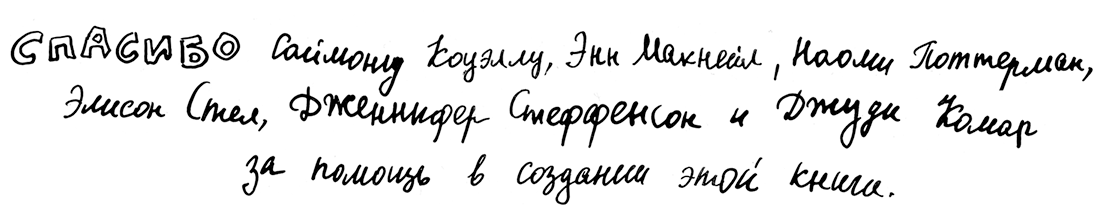 СПАСИБО Саймону Коуэллу, Энн Макнейл, Наоми Поттерман,
Элисон Стел, Дженнифер Стеффенсон и Джуди Комар
за помощь в создании этой книги.